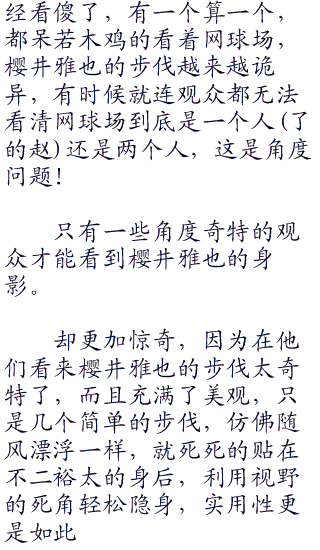 经看傻了，有一个算一个，
都呆若木鸡的看着网球场，
樱井雅也的步伐越来越诡
异，有时候就连观众都无法
看清网球场到底是一个人(了
的赵)还是两个人，这是角度
问题！
只有一些角度奇特的观
众才能看到樱井雅也的身
影。
却更加惊奇，因为在他
们看来樱井雅也的步伐太奇
特了，而且充满了美观，只
是几个简单的步伐，仿佛随
风漂浮一样，就死死的贴在
不二裕太的身后，利用视野
的死角轻松隐身，实用性更
是如此